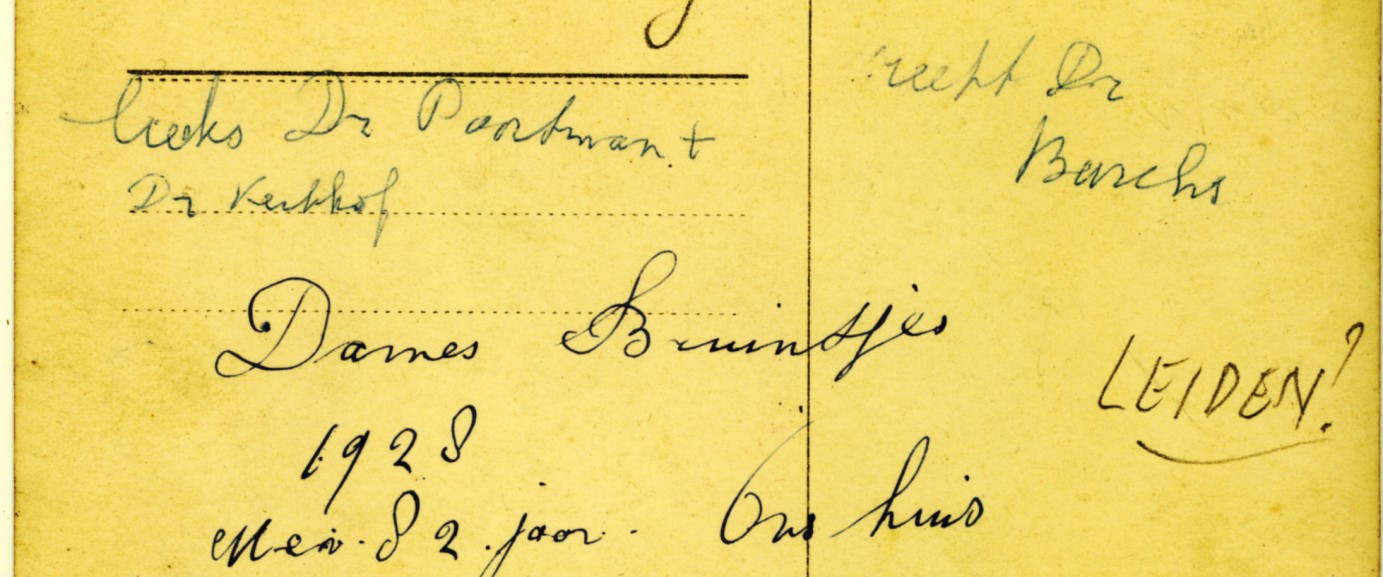 links Dr Poortman +
Dr Kerkhof
recht Dr
Barchs
Dames Bruintjes
LEIDEN?
1928
Mei. 82 jaar. Ons huis